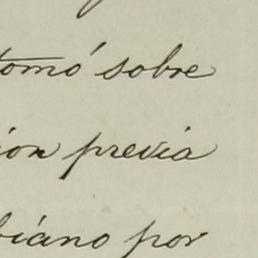 tomó sobre
ion previa
biano por